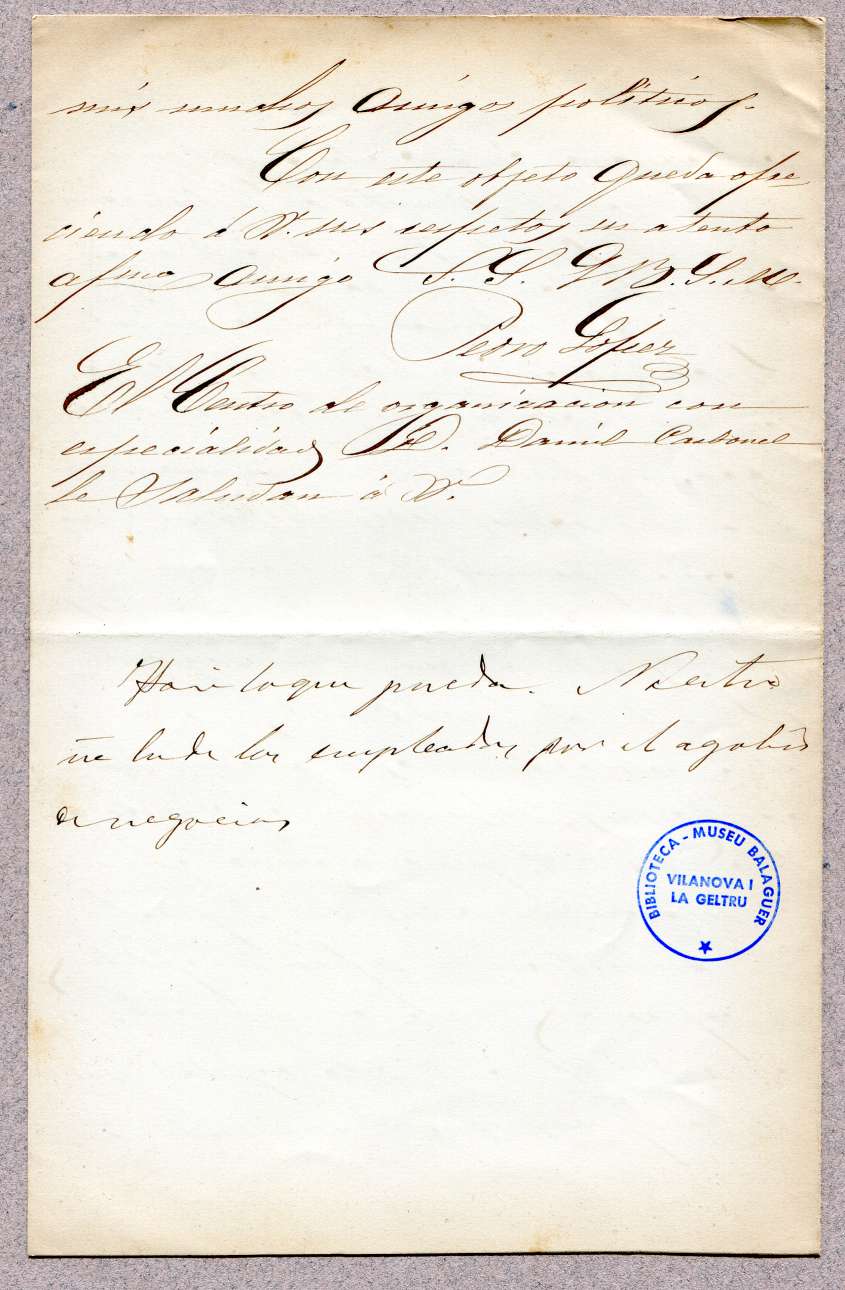 mis muchos amigos politicos.
Con este objeto queda ofre
ciendo á V. sus respetos su atento
afmo amigo S. S. Q B. S. M.
Pedro Lopez
El Centro de organizacion con
especialidad D. Daniel Carbonel
le Saludan á V.
Haré lo que pueda.
los empleados por el agobio
de negocios
BIBLIOTECA - MUSEU BALAGUER
VILANOVA I
LA GELTRU